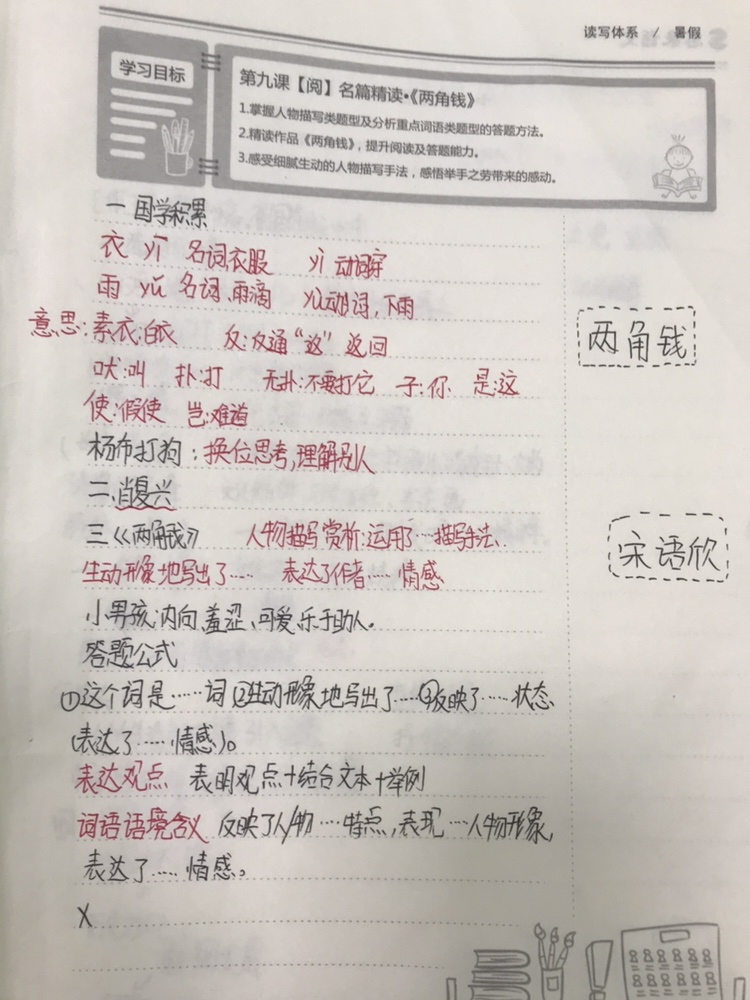 读写体系 / 暑假
学习目标
第九课【阅】名篇精读·《两角钱》
1.掌握人物描写类题型及分析重点词语类题型的答题方法。
2.精读作品《两角钱》，提升阅读及答题能力。
3.感受细腻生动的人物描写手法，感悟举手之劳带来的感动。
一 国学积累
衣 yī 名词衣服 yì 动词穿
雨 yǔ 名词,雨滴 yù动词,下雨
意思:素衣:白衣 反:反通“返”返回
吠:叫 扑:打 无扑:不要打它 子:你 是:这
使:假使 岂:难道
两角钱
杨布打狗:换位思考,理解别人
二.肖复兴
三《两角钱》 人物描写赏析:运用了…描写手法、
宋语欣
生动形象地写出了…… 表达了作者…… 情感
小男孩:内向,羞涩、可爱,乐于助人。
答题公式
①这个词是……词②生动形象地写出了……③反映了……状态、
(表达了…… 情感)。
表达观点 表明观点+结合文本+举例
词语语境含义 反映了人/物 …特点,表现 …人物形象,
表达了…… 情感。
X